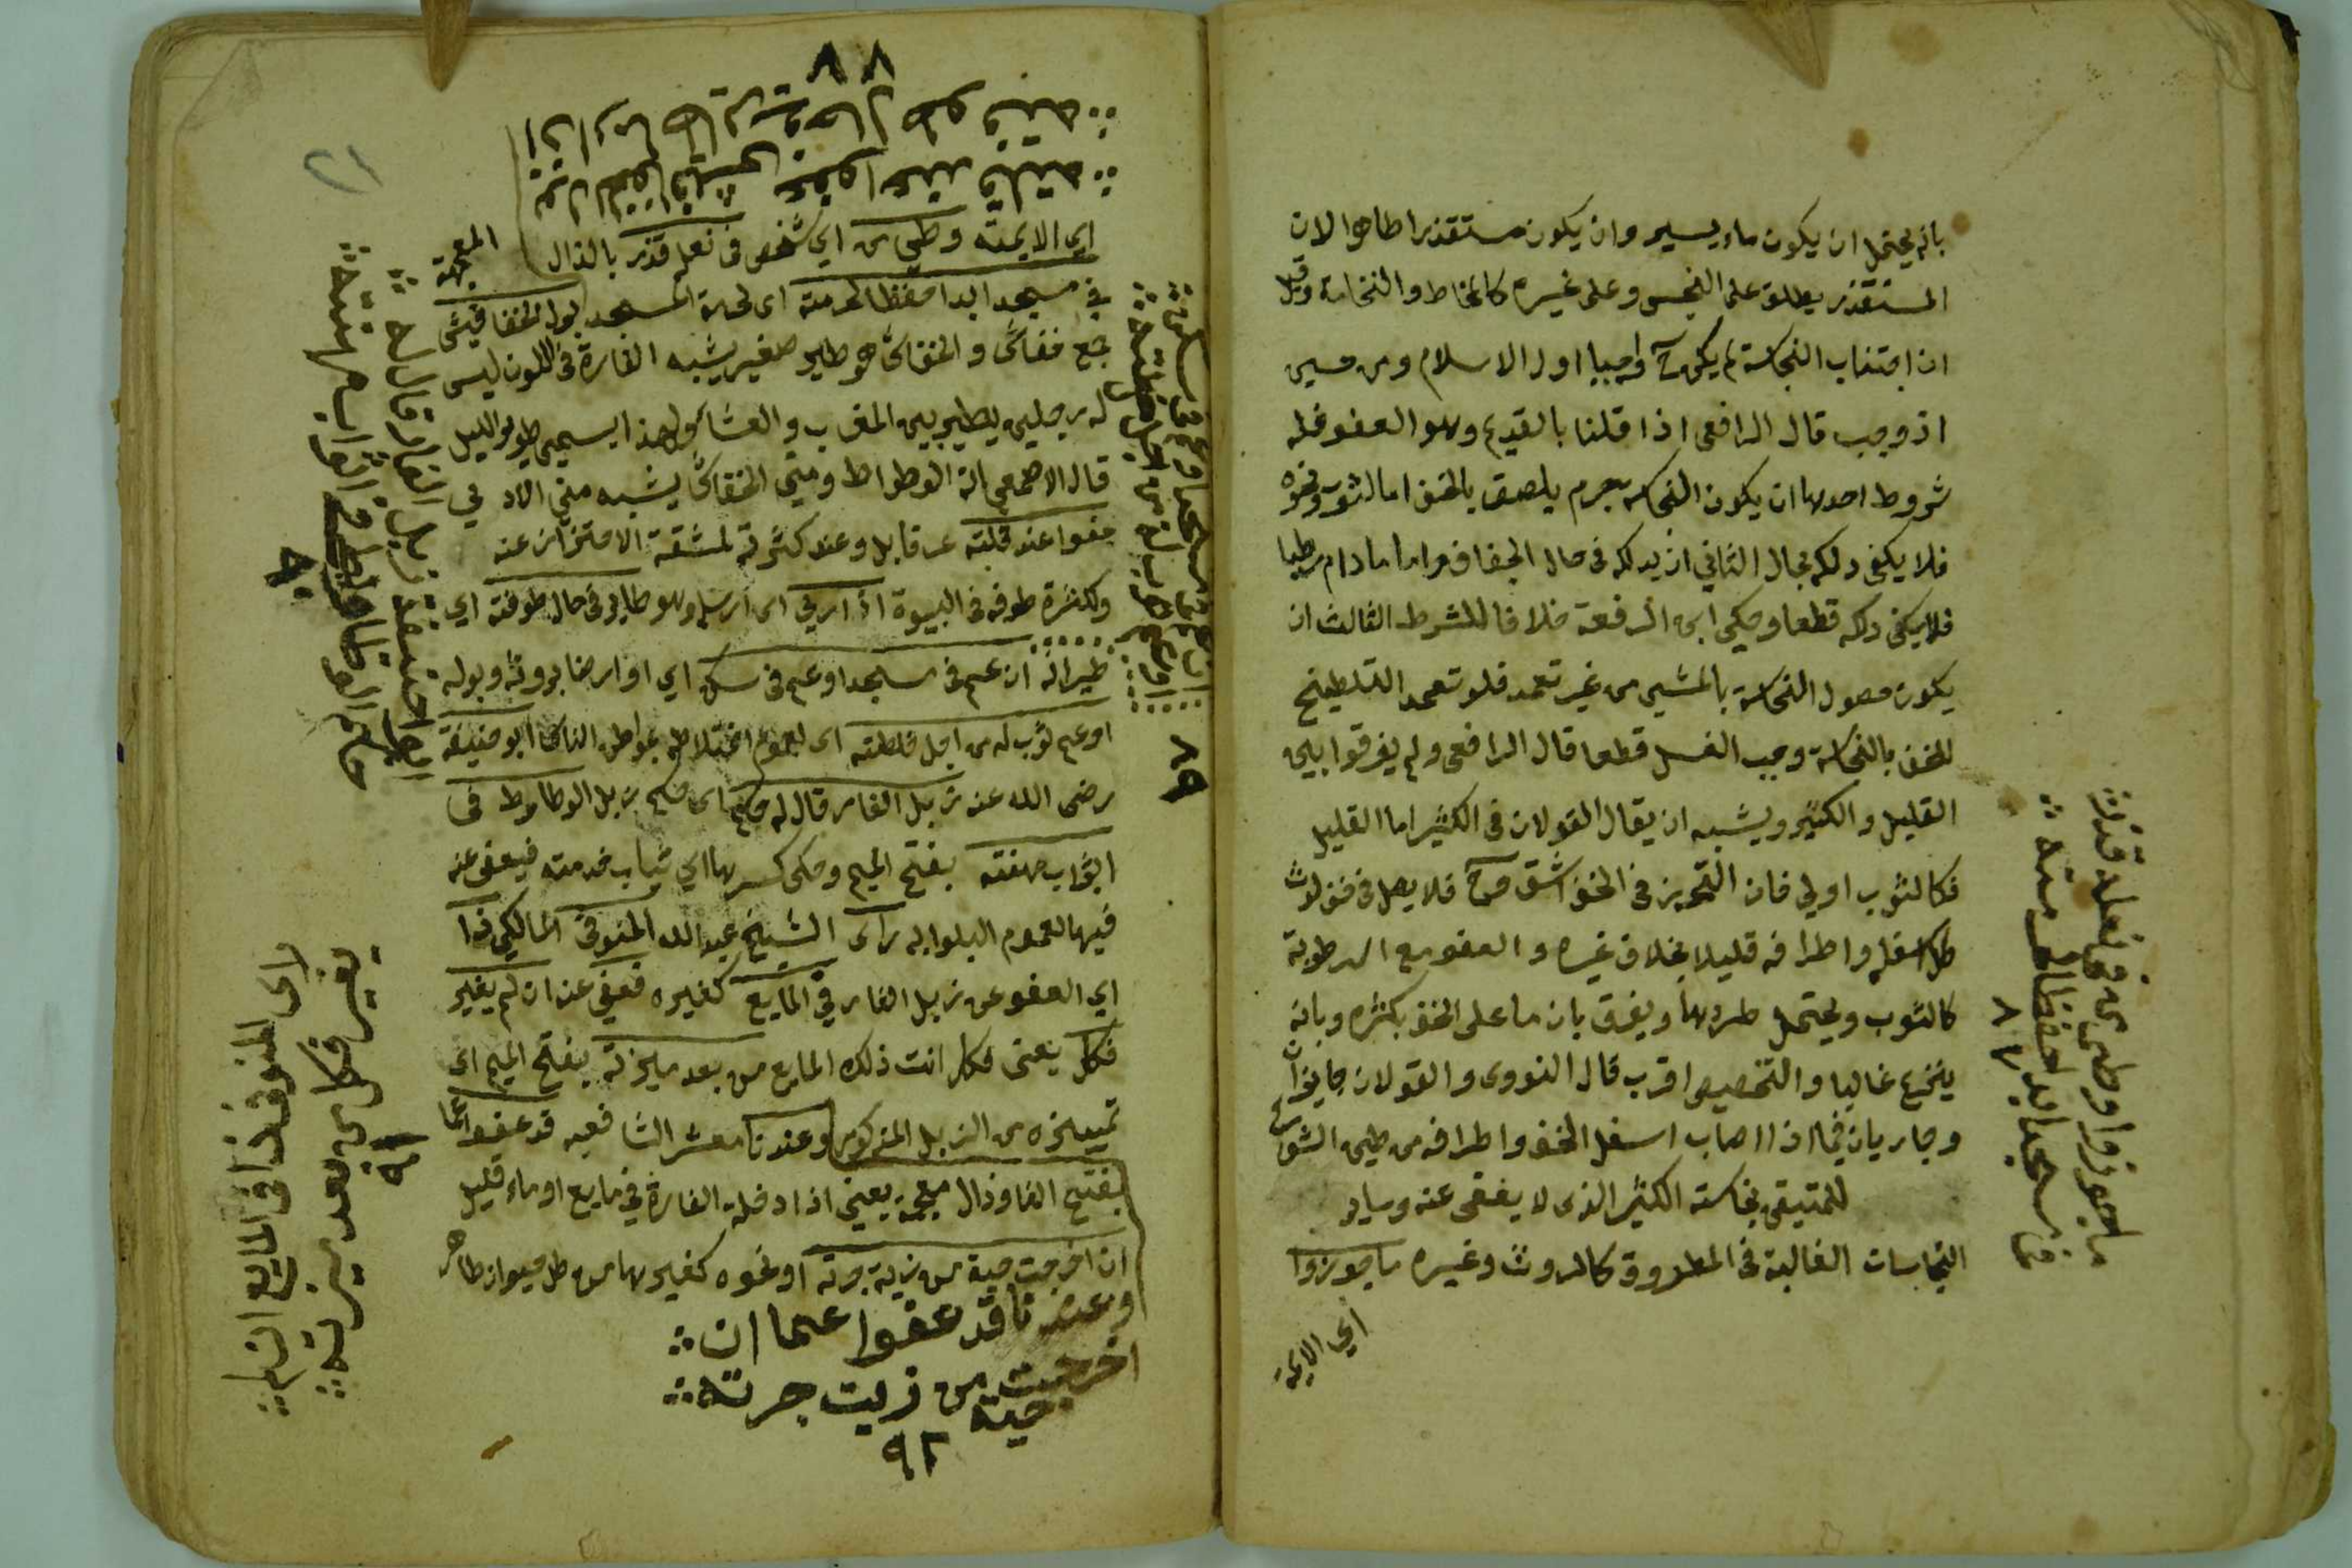 بانه يحتمل ان يكون ماء يسير وان يكون مستقذرا طاهرا لان
المستقذر يطلق على النجس وعلى غيره كالمخاط والنخامة وقيل
ان اجتناب النجاسة لم يكن واجبا اول الاسلام ومن حين
اذ وجب قال الرافعى اذا قلنا بالقديم وهو العفو فله
شروط احدها ان يكون النجاسة بجرم يلصق بالخف اما الثوب ونحوه
فلا يكفى دلكه بحال الثاني ان يدلكه فى حال الجفاف واما مادام رطبا
فلا يكفى دلكه قطعا وحكى ابن الرفعة خلافا للشرط الثالث ان
يكون حصول النجاسة بالمشي من غير تعمد فلو تعمد التلطيخ
للخف بالنجاسة وجب الغسل قطعا قال الرافعى ولم يفرقوا بين
القليل والكثير ويشبه ان يقال القولان فى الكثير اما القليل
فكالثوب اولى فان التحرز فى الخف اشق
اسفله واطرافه قليلا بخلاف غيره والعفو مع الرطوبة
كالثوب ويحتمل طردها ويفرق بان ما على الخف بكثره وبانه
ينزع غالبا والتخصيص اقرب قال النووى والقولان جايزان
وجاريان فيما اذا اصاب اسفل الخف واطرافه من طين الشوارع
المتيقن نجاسته الكثير الذى لا يعفى عنه وساير
النجاسات الغالبة فى الطروق كالروث وغيره ما جوزوا
اي الايمة
ما جوزوا وطي من فى نعله قذر
فى مسجد ابدا حفظا لحرمته
٨٧
بول الخفافيش عفوا عند قلته
اذا رما طايرا فى حال طوفته
٨٨
اي الايمة وطي من اي شخص فى نعله قذر بالذال المعجمة
في مسجد ابدا حفظا لحرمته اى لحرمة المسجد بول الخفافيش
جمع خفاش والخفاش هو طير صغير يشبه الفارة فى اللون ليس
له رجلين يطير بين المغرب والعشا ولهذا يسمى طير الليل
قال الاصمعى انه الوطواط ومنى الخفاش يشبه منى الادمي
عفوا عند قلته عن قابل وعند كثرته لمشقة الاحتراز عنه
ولكثرة طوفه فى البيوة اذا رمى اى ارسل وهو طاير فى حال طوفته اي
طيرانه ان عم فى مسجد او عم فى سكن اي او ارضا بروثه وبوله
او عم ثوب له من اجل خلطته اى لعموم اختلاطه بمواطن الناس ابو حنيفة
رضى الله عنه زبل الفار قال له حكم اى حكم زبل الوطاوط فى
اثواب مهنته بفتح الميم وحكى كسرها اي ثياب خدمته فيعفى عنه
فيها لعموم البلوا به راى الشيخ عبد الله المنوفى المالكى ذا
اي العفو عن زبل الفار في المايع كغيره فعفى عنه ان لم يغير
فكل يعنى فكل انت ذلك المايع من بعد ميزته بفتح الميم اى
تمييزه من الزبل المذكور وعندنا معشر الشافعيه قد عفوا عما
بفتح الفا وذال معجمة يعنى اذا دخلت الفارة في مايع او ماء قليل
ان اخرجت حية من زيت جرته او نحوه كغيرها من كل حيوان طاهر
ان عم فى مسجد او عم فى سكن
او عم ثوب له من اجل خلطته
٨٩
ابو حنيفة زبل الفار قال له
حكم الوطاوط فى اثواب مهنته
٩٠
راى المنوفى ذا فى المايع ان لم
يغير فكل من بعد ميزته
٩١
وعندنا قد عفوا عما ان
اخرجت حية من زيت جرته
٩٢